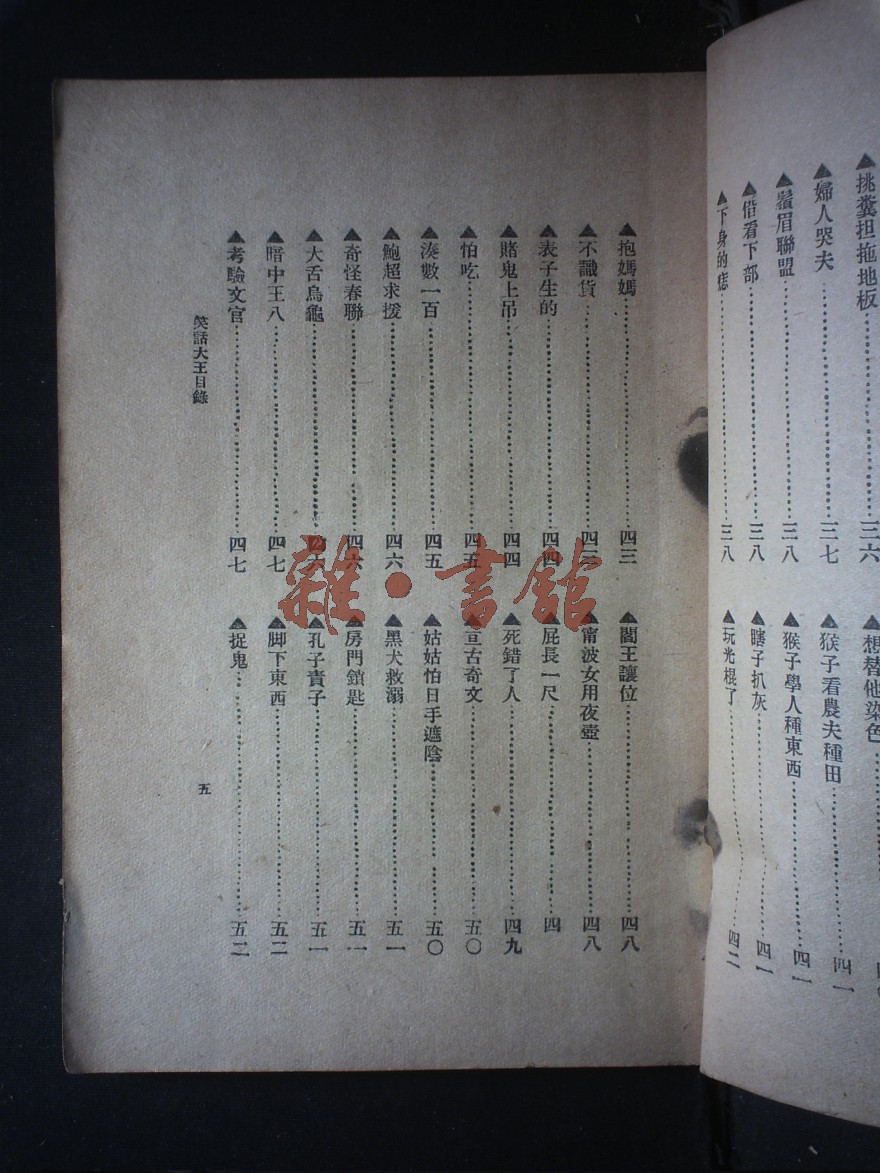 ▲挑糞担拖地板……三六
▲婦人哭夫……三七
▲鬚眉聯盟……三八
▲借看下部……三八
▲下身的痣……三八
想替他染色……
猴子看農夫種田……四一
▲猴子學人種東西……四一
▲瞎子扒灰……四一
▲玩光棍了……四二
▲抱媽媽……四三
▲不識貨……四三
▲表子生的……四四
▲賭鬼上吊……四四
▲怕吃……四五
▲湊數一百……四五
▲鮑超求援……四六
▲奇怪春聯……四六
▲大舌烏龜……四六
▲暗中王八……四七
▲考驗文官……四七
▲閻王讓位……四八
▲甯波女用夜壺……四八
▲屁長一尺……四
▲死錯了人……四九
▲亘古奇文……五〇
▲姑姑怕日手遮陰……五〇
▲黑犬救溺……五一
▲房門鎖匙……五一
▲孔子責子……五一
▲脚下東西……五二
▲捉鬼……五二
笑話大王目錄
五
雜·書館